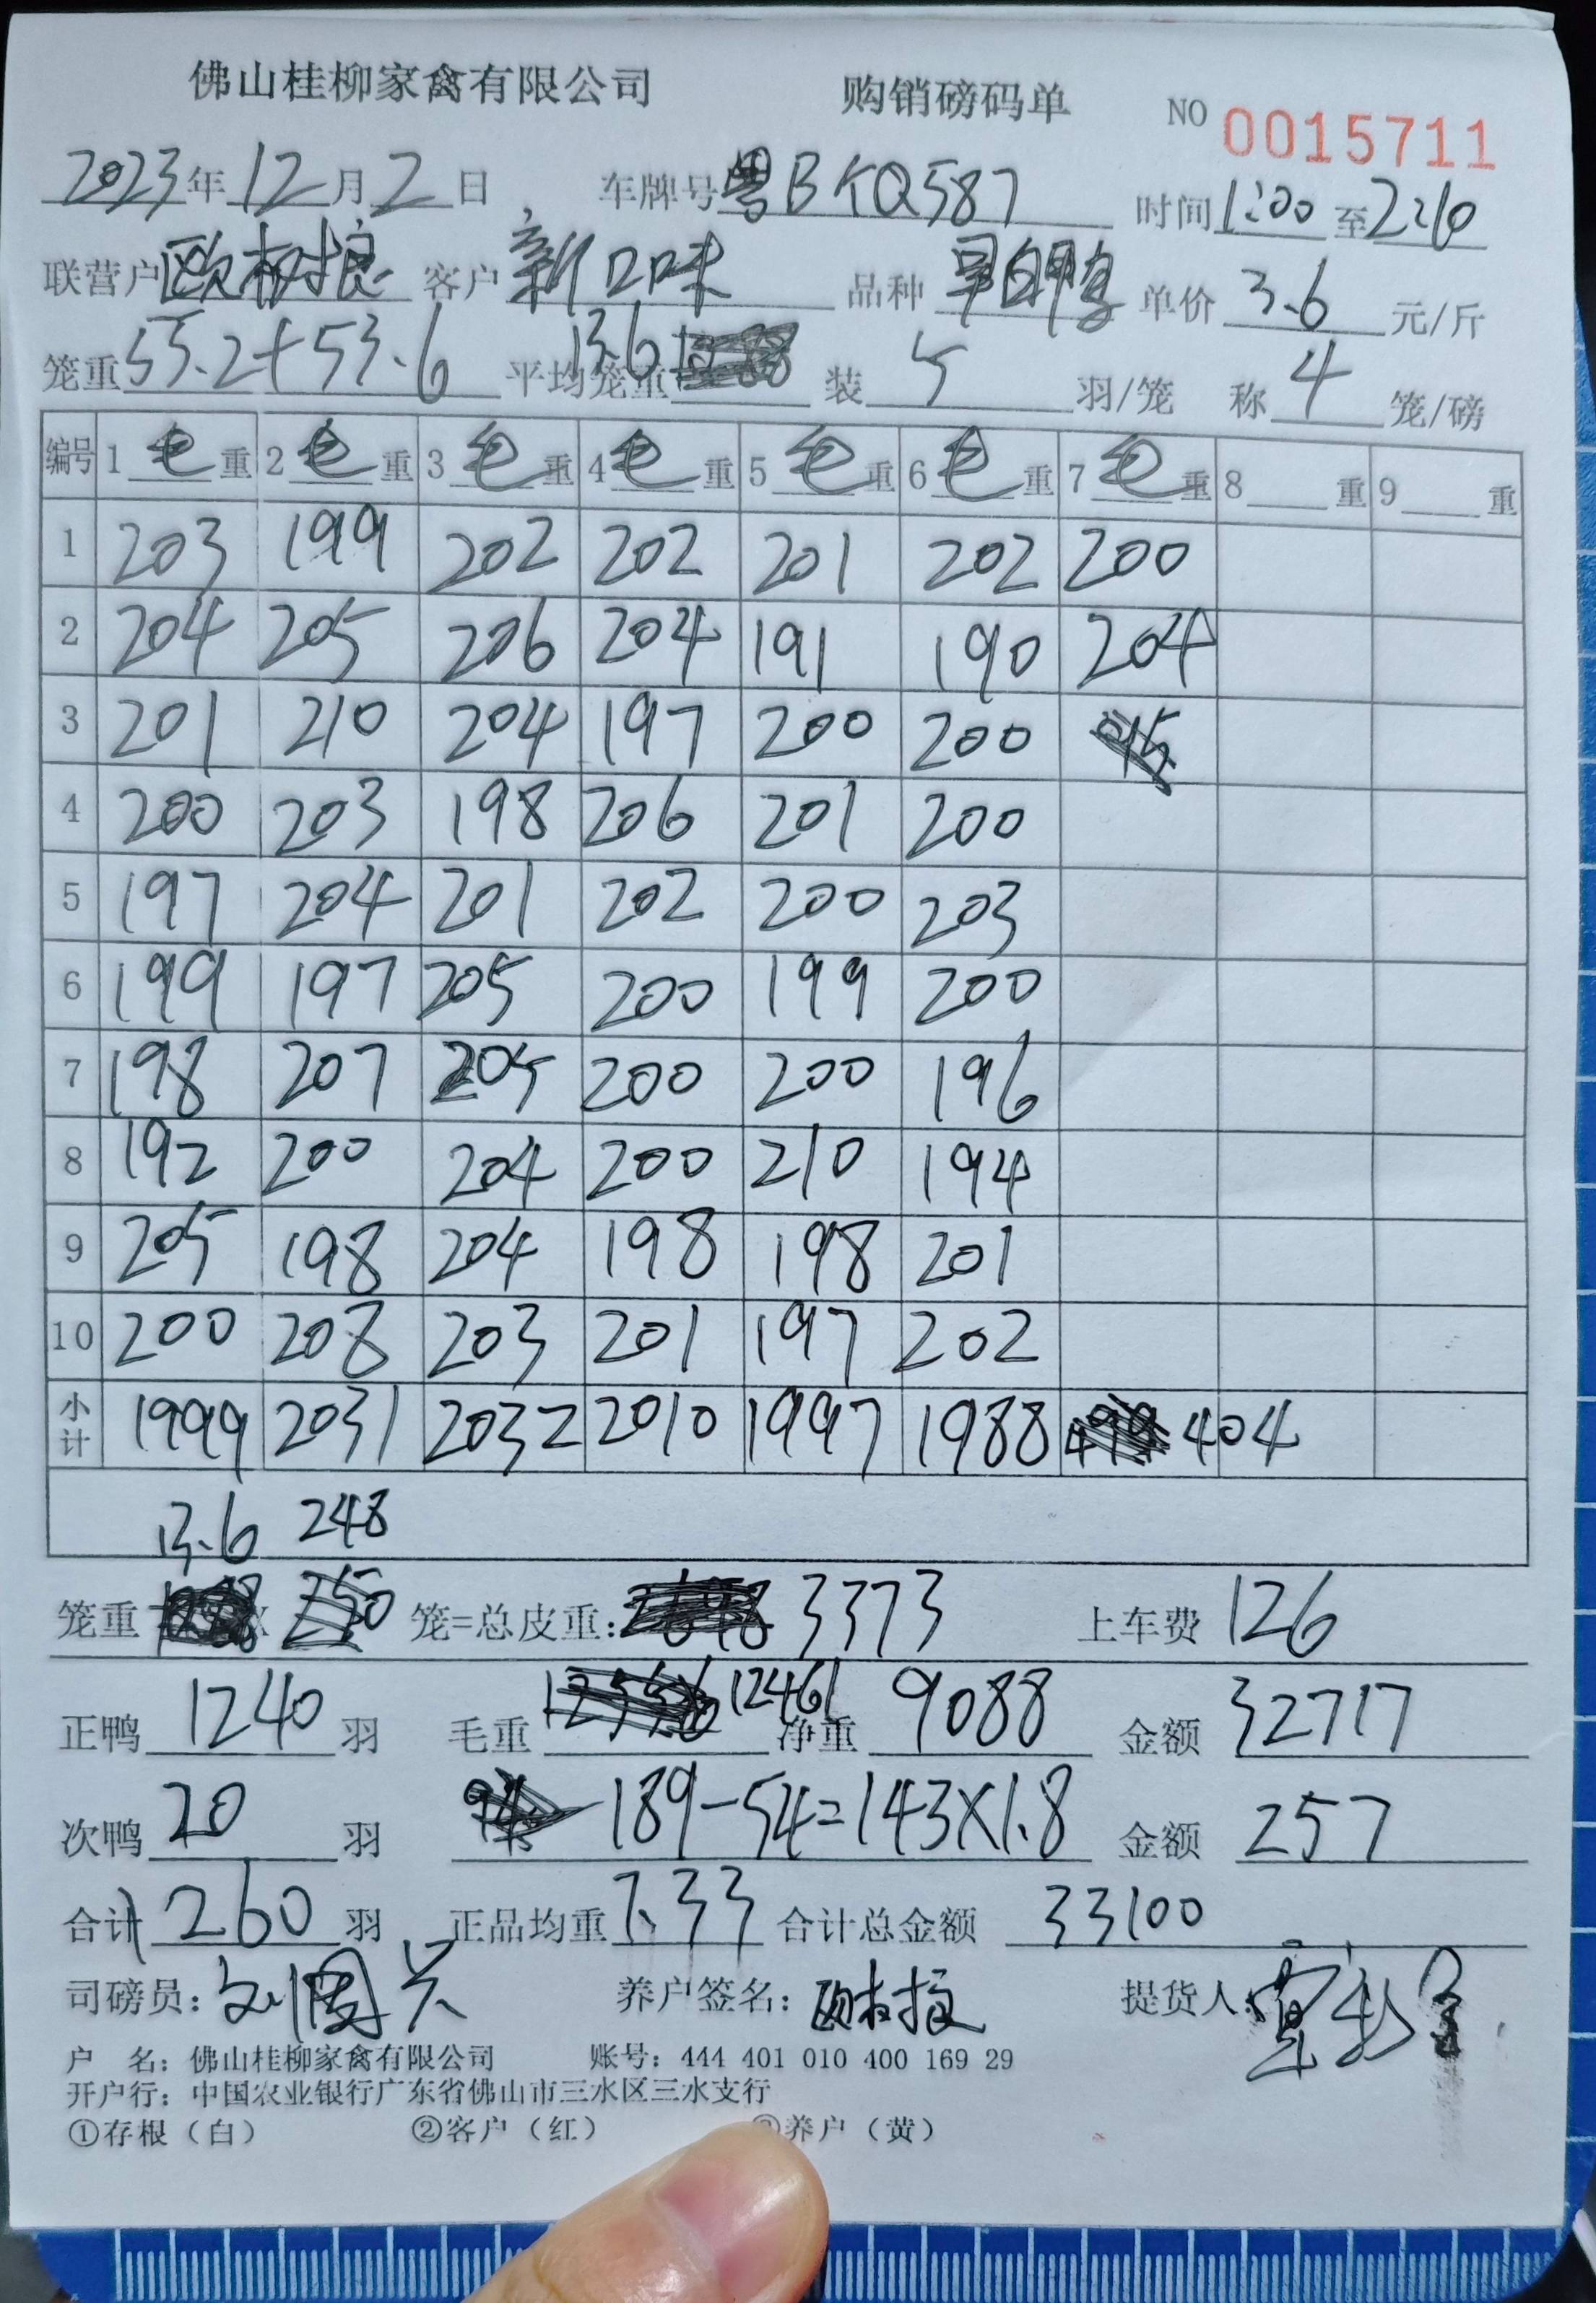 佛山桂柳家禽有限公司 购销磅码单 NO 0015711
2023年12月2日 车牌号粤BKQ587 时间1:00至2:10
联营户欧树根 客户新口味 品种 白鸭 单价3.6元/斤
笼重55.2+53.6 平均笼重13.6 装5羽/笼 称4笼/磅
编号 1毛重 2毛重 3毛重 4毛重 5毛重 6毛重 7毛重 8重 9重
1 203 199 202 202 201 202 200
2 204 205 206 204 191 190 204
3 201 210 204 197 200 200
4 200 203 198 206 201 200
5 197 204 201 202 200 203
6 199 197 205 200 199 200
7 198 207 205 200 200 196
8 192 200 204 200 210 194
9 205 198 204 198 198 201
10 200 208 203 201 197 202
小计 1999 2031 2032 2010 1997 1988 404
13.6 248
笼重 X 250 笼=总皮重: 3373 上车费 126
正鸭1240羽 毛重12461 净重9088 金额32717
次鸭20羽 189-54=143X1.8 金额257
合计1260羽 正品均重7.33 合计总金额33100
司磅员: 养户签名: 提货人:
户 名: 佛山桂柳家禽有限公司 账号: 444 401 010 400 169 29
开户行: 中国农业银行广东省佛山市三水区三水支行
①存根（白） ②客户（红） ③养户（黄）